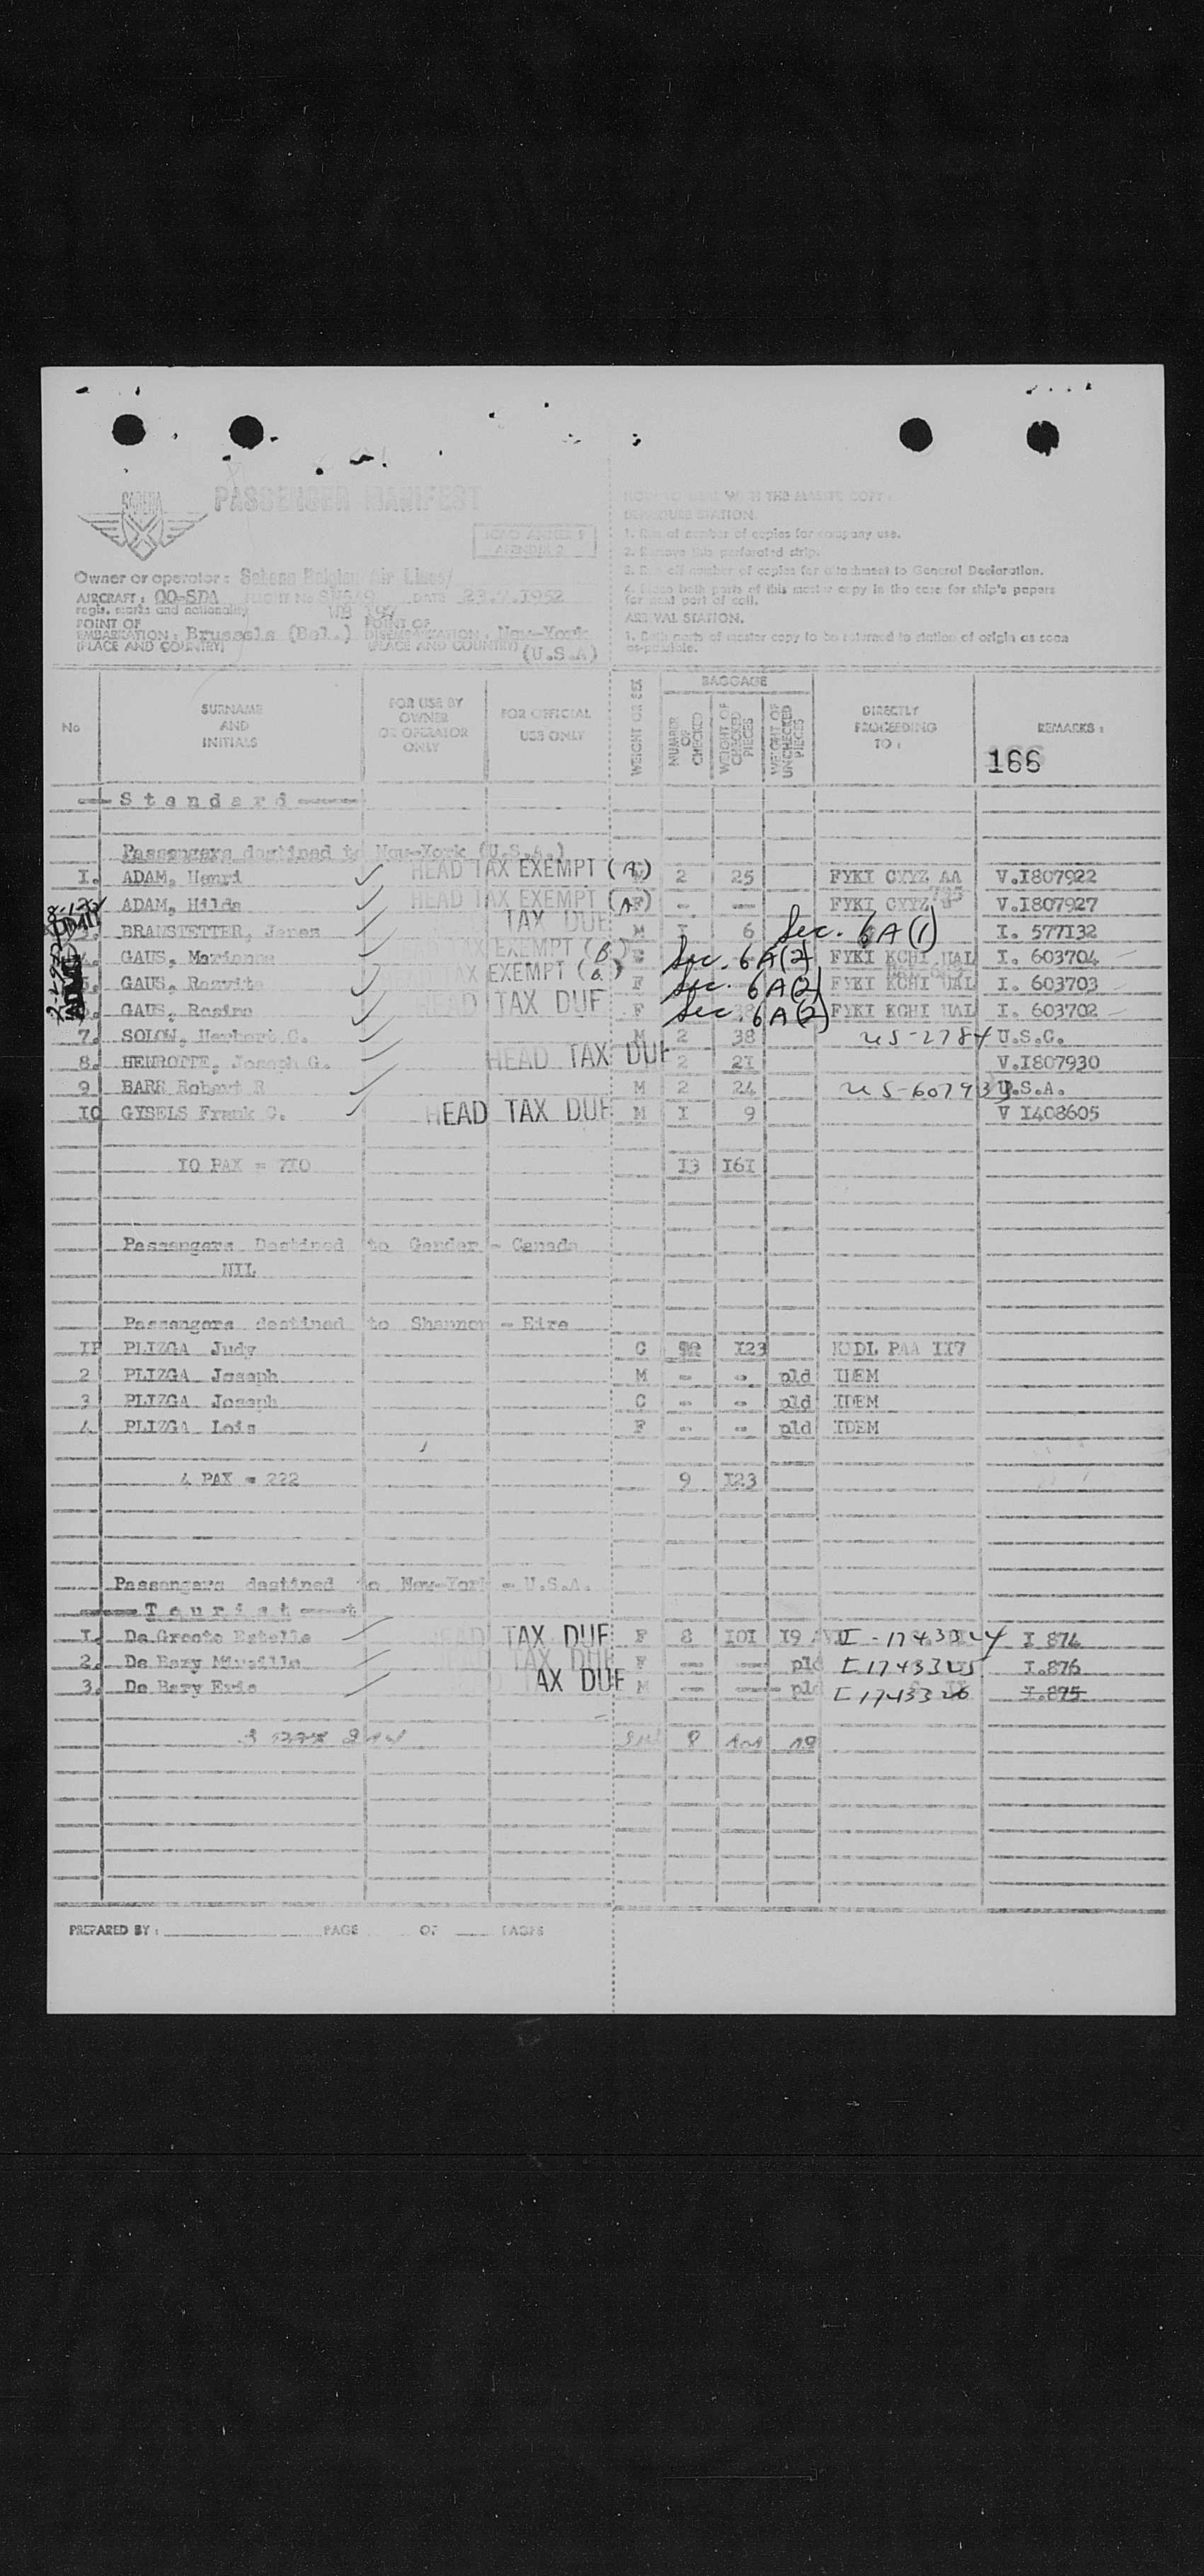 SABENA
PASSENGER MANIFEST
ICAO ANNEX 9
Owner or operator : Sabena Belgian Air Lines/
AIRCRAFT : OO-SDA FLIGHT No SN549 DATE 23.7.1952
regis. marks and nationality
POINT OF EMBARKATION : Brussels (Bel.) POINT OF DISEMBARKATION : New-York
(PLACE AND COUNTRY) (PLACE AND COUNTRY) (U.S.A)
THE MASTER COPY :
DEPARTURE STATION.
1. Run of number of copies for company use.
2. Remove this perforated strip.
3. Run off number of copies for attachment to General Declaration.
4. both parts of this master copy in the case for ship's papers
for next port of call.
ARRIVAL STATION.
1. Both parts of master copy to be returned to station of origin as soon
as possible.
No
SURNAME AND INITIALS
FOR USE BY OWNER OR OPERATOR ONLY
FOR OFFICIAL USE ONLY
WEIGHT OR SEX
BAGGAGE
NUMBER OF CHECKED
WEIGHT OF CHECKED PIECES
WEIGHT OF UNCHECKED PIECES
DIRECTLY PROCEEDING TO :
REMARKS :
166
Standard
Passengers destined to New-York (U.S.A.)
I. ADAM, Henri HEAD TAX EXEMPT (A) M 2 25 FYKI CYYZ AA V.I807922
ADAM, Hilda HEAD TAX EXEMPT (A) F - - FYKI CYYZ V.I807927
BRAMSTETTER, TAX DUE M I 6 Sec. 6A(1) I. 577I32
4. GAUS, Marianne TAX EXEMPT (B) Sec. 6A(2) FYKI KCHI UAL I. 603704
5. GAUS, Roswita TAX EXEMPT (B) F Sec. 6A(2) FYKI KCHI UAL I. 603703
GAUS, Rosina HEAD TAX DUE F Sec. 6A(2) FYKI KCHI UAL I. 603702
7. SOLOW, Herbert C. M 2 38 US-2784 U.S.C.
8. HENROTTE, Joseph G. HEAD TAX DUE 2 21 V.I807930
9 BARR Robert R M 2 24 US-607933 U.S.A.
IO GYSELS Frank C. HEAD TAX DUE M I 9 V I408605
IO PAX = 7IO I3 I6I
Passengers Destined to Gander - Canada
NIL
Passengers destined to Shannon - Eire
PLIZGA Judy C I23 KJDL PAA II7
2 PLIZGA Joseph M - - pld IDEM
3 PLIZGA Joseph C - - pld IDEM
4 PLIZGA Lois F - - pld IDEM
4 PAX = 222 9 I23
Passengers destined to New-York - U.S.A.
Tourist
I. De Groote Estelle HEAD TAX DUE F 8 IOI I9 I-1743324 I 874
2. De Bary Mireille TAX DUE F - - pld I 1743325 I.876
3. De Bary Eric TAX DUE M - - pld I 1743326 I.875
8 101 19
PREPARED BY : PAGE OF PAGES